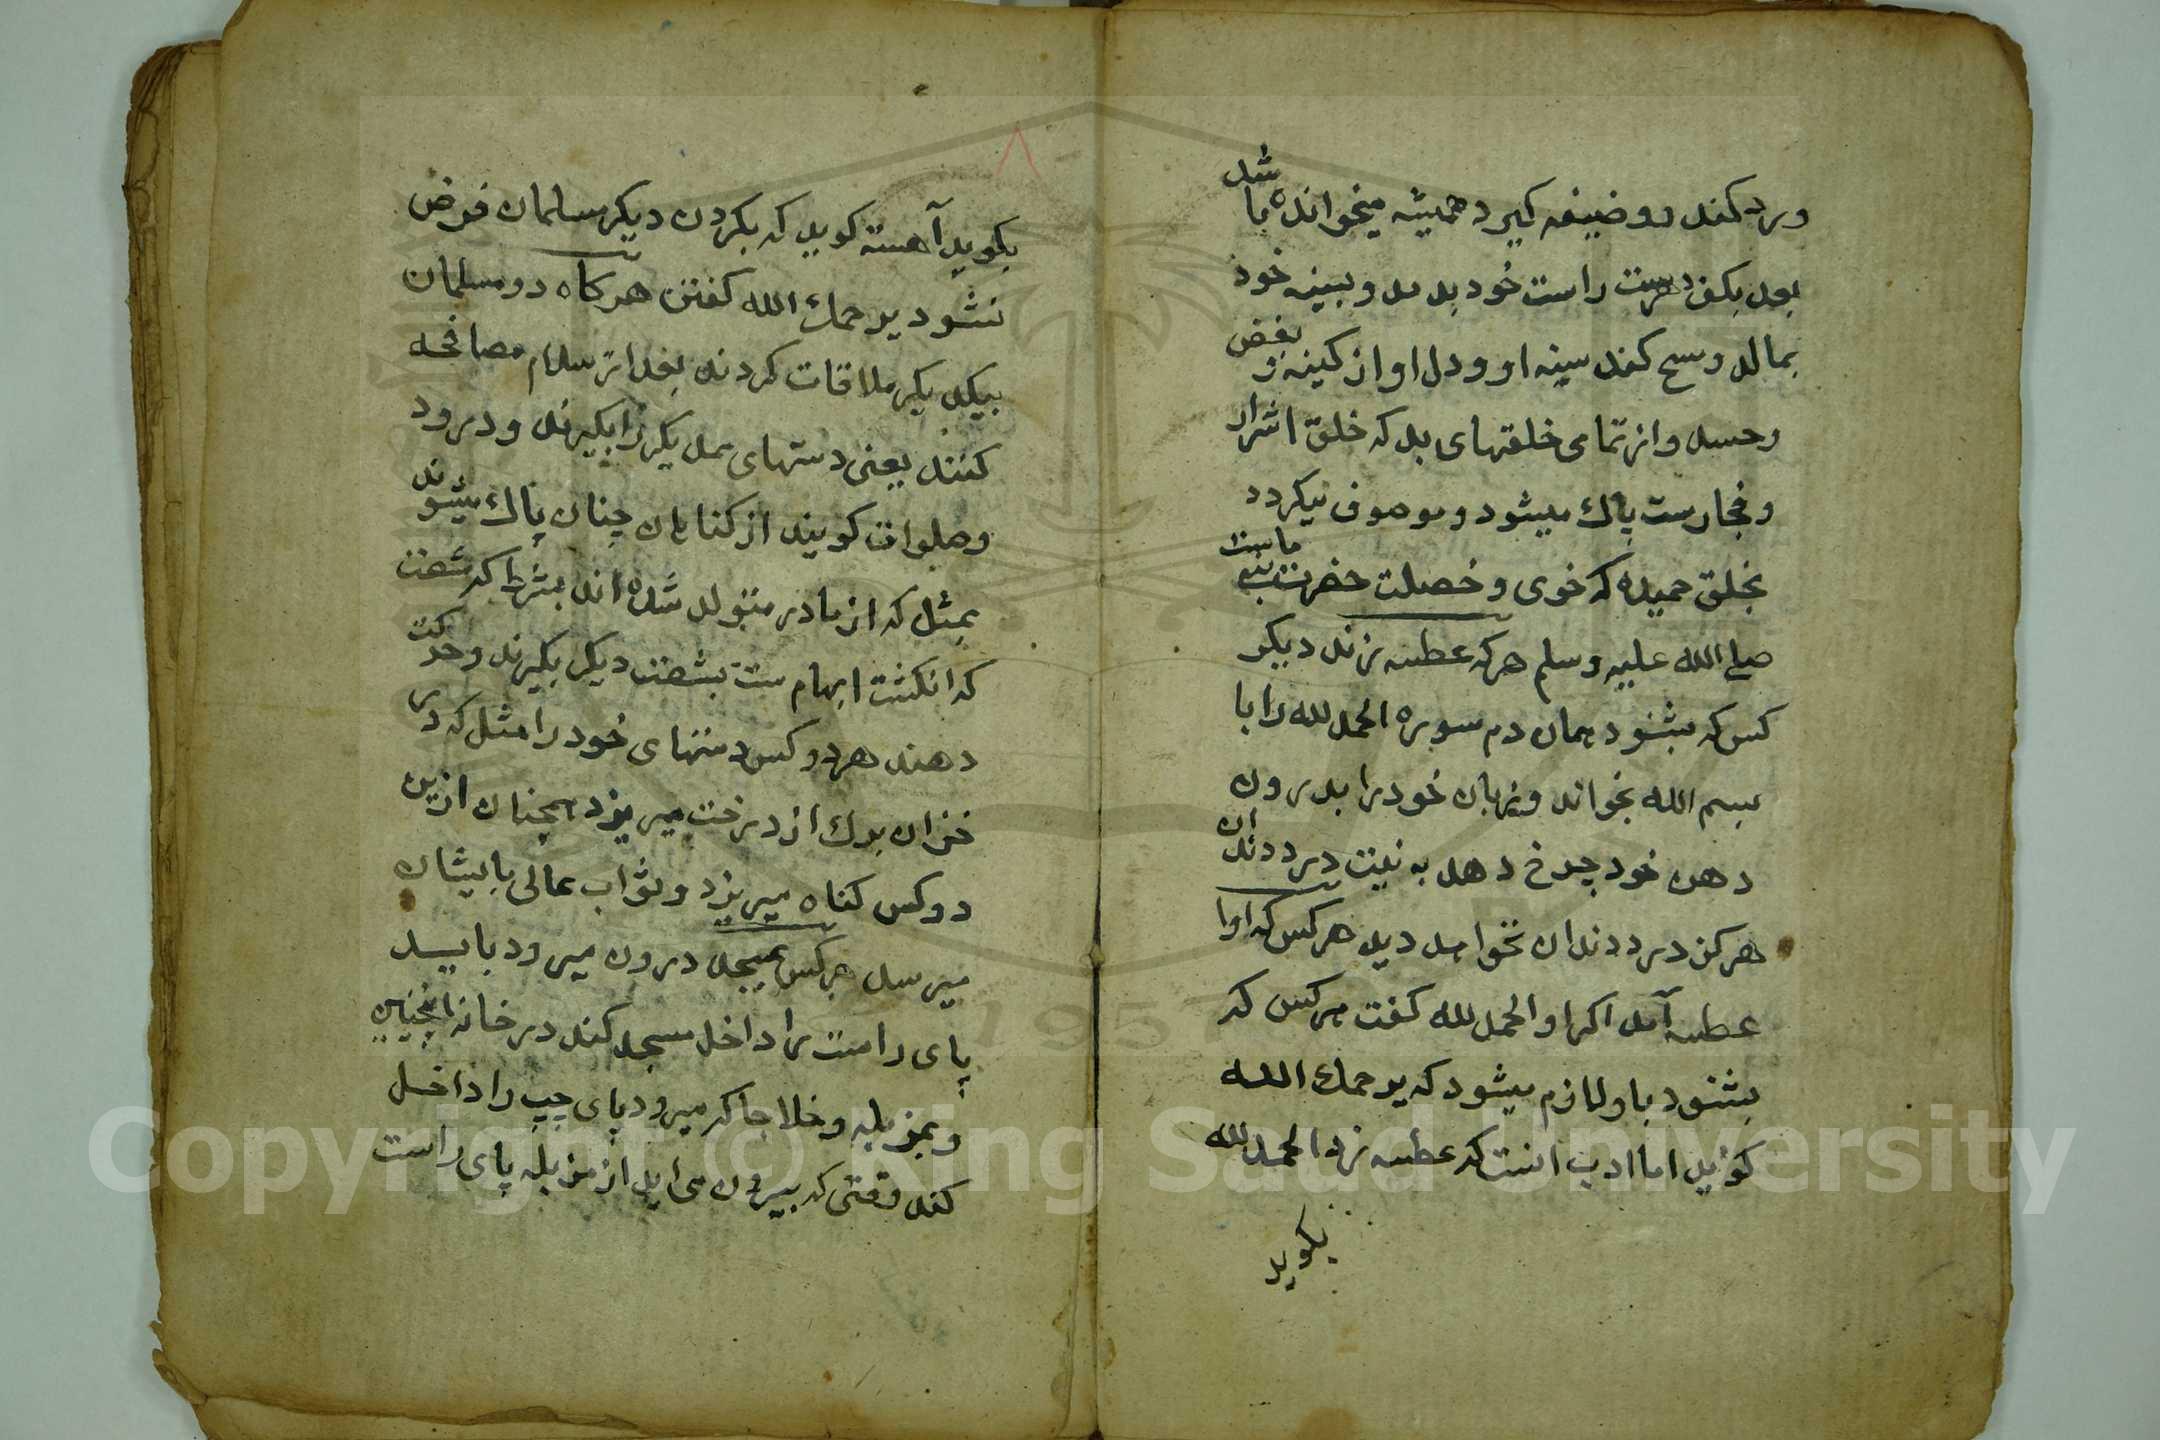 ورد کند و وضیفه کیرد همیشه میخوانده با شد
بعد بکف دست راست خود بدمد و بسینه خود
بمالد و مسح کند سینه او و دل او از کینه و بغض
و حسد و از تمامی خلقهای بد که خلق اشرار
و فجارست پاك میشود و موصوف میکردد
بخلق حمیده که خوی و خصلت حضرت
صلے الله علیه وسلم هرکه عطسه زند دیکر
کس که بشنود همان دم سوره الحمد لله را با
بسم الله بخواند و زبان خود را بدرون
دهن خود چرخ دهد به نیت درد دندان
هرکز درد دندان نخواهد دید هرکس که اورا
عطسه آمد اکر او الحمد لله کفت هرکس که
بشنود باو لازم میشود که یرحمك الله
کوید اما ادب انست که عطسه زد الحمد لله
بکوید
بکوید آهسته کوید که بکردن دیکر مسلمان فرض
نشود یرحمك الله کفتن هرکاه دو مسلمان
بیکدیکر ملاقات کردند بعد از سلام مصافحه
کنند یعنی دستهای همدیکر را بکیرند و درود
و صلوات کویند از کناهان چنان پاك میشوند
بمثل که از مادر متولد شده اند بشرط که شصت
که انکشت ابهام ست بشصت دیکر بکیرند و حرکت
دهند هردو کس دستهای خود را مثل که در
خزان برك از درخت میریزد همچنان ازین
دو کس کناه میریزد و ثواب عالی بایشان
میرسد هرکس بمسجد درون میرود باید
پای راست را داخل مسجد کند در خانه همچنین
و بمزبله و خلا جا که میرود پای چپ را داخل
کند وقتی که بیرون می اید از مزبله پای راست
Copyright © King Saud University
1957